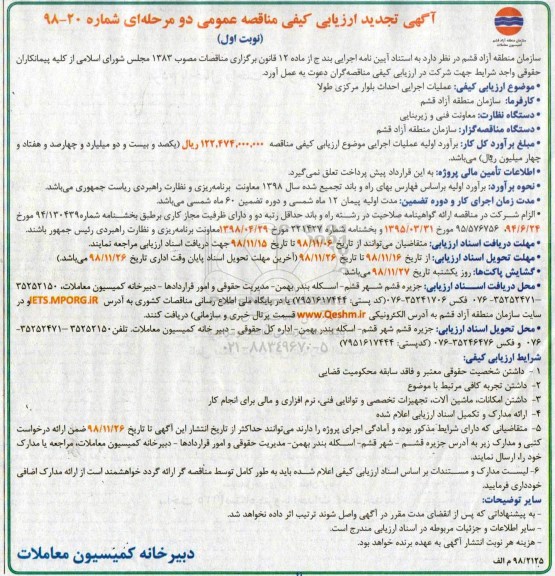 آگهی تجدید ارزیابی کیفی مناقصه عمومی دو مرحله‌ای شماره ۲۰-۹۸
(نوبت اول)
سازمان منطقه آزاد قشم
کمیسیون معاملات
سازمان منطقه آزاد قشم در نظر دارد به استناد آیین نامه اجرایی بند ج از ماده ۱۲ قانون برگزاری مناقصات مصوب ۱۳۸۳ مجلس شورای اسلامی از کلیه پیمانکاران
حقوقی واجد شرایط جهت شرکت در ارزیابی کیفی مناقصه‌گران دعوت به عمل آورد.
• موضوع ارزیابی کیفی: عملیات اجرایی احداث بلوار مرکزی طولا
• کارفرما: سازمان منطقه آزاد قشم
دستگاه نظارت: معاونت فنی و زیربنایی
• دستگاه مناقصه‌گزار: سازمان منطقه آزاد قشم
• مبلغ برآورد کل کار: برآورد اولیه عملیات اجرایی موضوع ارزیابی کیفی مناقصه ۱۲۲,۴۷۴,۰۰۰,۰۰۰ ریال (یکصد و بیست و دو میلیارد و چهارصد و هفتاد و
چهار میلیون ریال) می‌باشد.
• اطلاعات تأمین مالی پروژه: به این قرارداد پیش پرداخت تعلق نمی‌گیرد.
• نحوه برآورد: برآورد اولیه براساس فهارس بهای راه و باند تجمیع شده سال ۱۳۹۸ معاونت برنامه‌ریزی و نظارت راهبردی ریاست جمهوری می‌باشد.
مدت زمان اجرای کار و دوره تضمین: مدت اولیه پیمان ۱۲ ماه شمسی و دوره تضمین ۶۰ ماه شمسی می‌باشد.
• الزام شرکت در مناقصه ارائه گواهینامه صلاحیت در رشته راه و باند حداقل رتبه دو و دارای ظرفیت مجاز کاری برطبق بخشنامه شماره ۹۴/۱۳۰۴۳۹ مورخ
۹۴/۶/۲۴، ۹۵/۵۷۶۷۵۶ مورخ ۱۳۹۵/۰۳/۳۱ و بخشنامه شماره ۲۲۱۴۲۷ مورخ ۱۳۹۸/۰۴/۲۹ معاونت برنامه‌ریزی و نظارت راهبردی رئیس جمهور باشند.
• مهلت دریافت اسناد ارزیابی: متقاضیان می‌توانند از تاریخ ۹۸/۱۱/۰۶ تا تاریخ ۹۸/۱۱/۱۵ جهت دریافت اسناد ارزیابی مراجعه نمایند.
• مهلت تحویل اسناد ارزیابی: از تاریخ ۹۸/۱۱/۱۶ تا تاریخ ۹۸/۱۱/۲۶ (آخرین مهلت تحویل اسناد پایان وقت اداری تاریخ ۹۸/۱۱/۲۶ می‌باشد).
• گشایش پاکت‌ها: روز یکشنبه تاریخ ۹۸/۱۱/۲۷ می‌باشد.
• محل دریافت اسناد ارزیابی: جزیره قشم شهر قشم- اسکله بندر بهمن- مدیریت حقوقی و امور قراردادها - دبیرخانه کمیسیون معاملات، ۳۵۲۵۲۱۵۰
۳۵۲۵۲۴۷۱-۰۷۶ فکس ۳۵۲۴۱۷۰۶-۰۷۶ (کد پستی: ۷۹۵۱۶۱۷۴۴۴) یا در پایگاه ملی اطلاع رسانی مناقصات کشوری به آدرس IETS.MPORG.IR و در
سایت سازمان منطقه آزاد قشم به آدرس الکترونیکی www.Qeshm.ir قسمت پرتال خبری و سازمانی) دریافت کنند.
• محل تحویل اسناد ارزیابی: جزیره قشم شهر قشم- اسکله بندر بهمن- اداره کل حقوقی - دبیر خانه کمیسیون معاملات. تلفن: ۳۵۲۵۲۱۵۰ -۳۵۲۵۲۴۷۱
۰۷۶ و فکس ۳۵۲۴۶۴۷۶-۰۷۶ (کدپستی: ۷۹۵۱۶۱۷۴۴۴)
شرایط ارزیابی کیفی:
۱- داشتن شخصیت حقوقی معتبر و فاقد سابقه محکومیت قضایی
۲- داشتن تجربه کافی مرتبط با موضوع
۳- داشتن امکانات، ماشین آلات، تجهیزات تخصصی و توانایی فنی، نرم افزاری و مالی برای انجام کار
۴- ارائه مدارک و تکمیل اسناد ارزیابی اعلام شده
۵- متقاضیانی که دارای شرایط مذکور بوده و آمادگی اجرای پروژه را دارند می‌توانند حداکثر از تاریخ انتشار این آگهی تا تاریخ ۹۸/۱۱/۲۶ ضمن ارائه درخواست
کتبی و مدارک زیر به آدرس جزیره قشم - شهر قشم- اسکله بندر بهمن- مدیریت حقوقی و امور قراردادها - دبیرخانه کمیسیون معاملات، مراجعه یا مدارک
خود را، ارسال نمایند.
۶- لیست مدارک و مستندات بر اساس اسناد ارزیابی کیفی اعلام شده باید به طور کامل توسط مناقصه گر ارائه گردد خواهشمند است از ارائه مدارک اضافی
خودداری فرمایید.
سایر توضیحات:
- به پیشنهاداتی که پس از انقضای مدت مقرر در آگهی واصل شوند ترتیب اثر داده نخواهد شد.
- سایر اطلاعات و جزئیات مربوطه در اسناد ارزیابی مندرج است.
- هزینه هر نوبت انتشار آگهی به عهده برنده خواهد بود.
۹۸/۲۱۲۵ م الف
دبیرخانه کمیسیون معاملات
۰۲۱-۸۸۳۴۹۶۷۰-۵